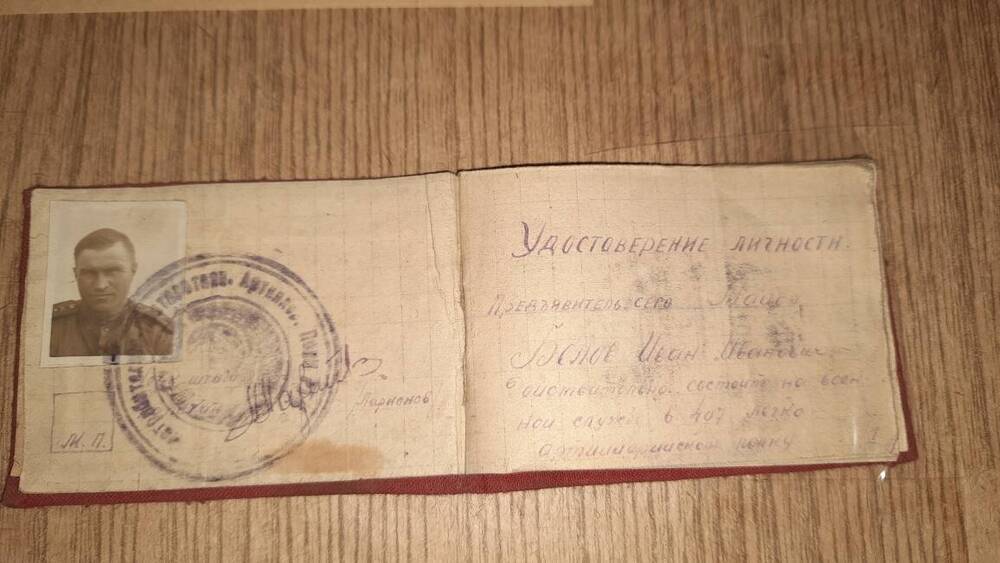 Артиллер. Полк
Ларионов
М. П.
Удостоверение личности.
Предъявитель сего Майор
Белов Иван Иванович
действительно состоит на воен
ной службе в 407 легко
артиллерийском полку
1